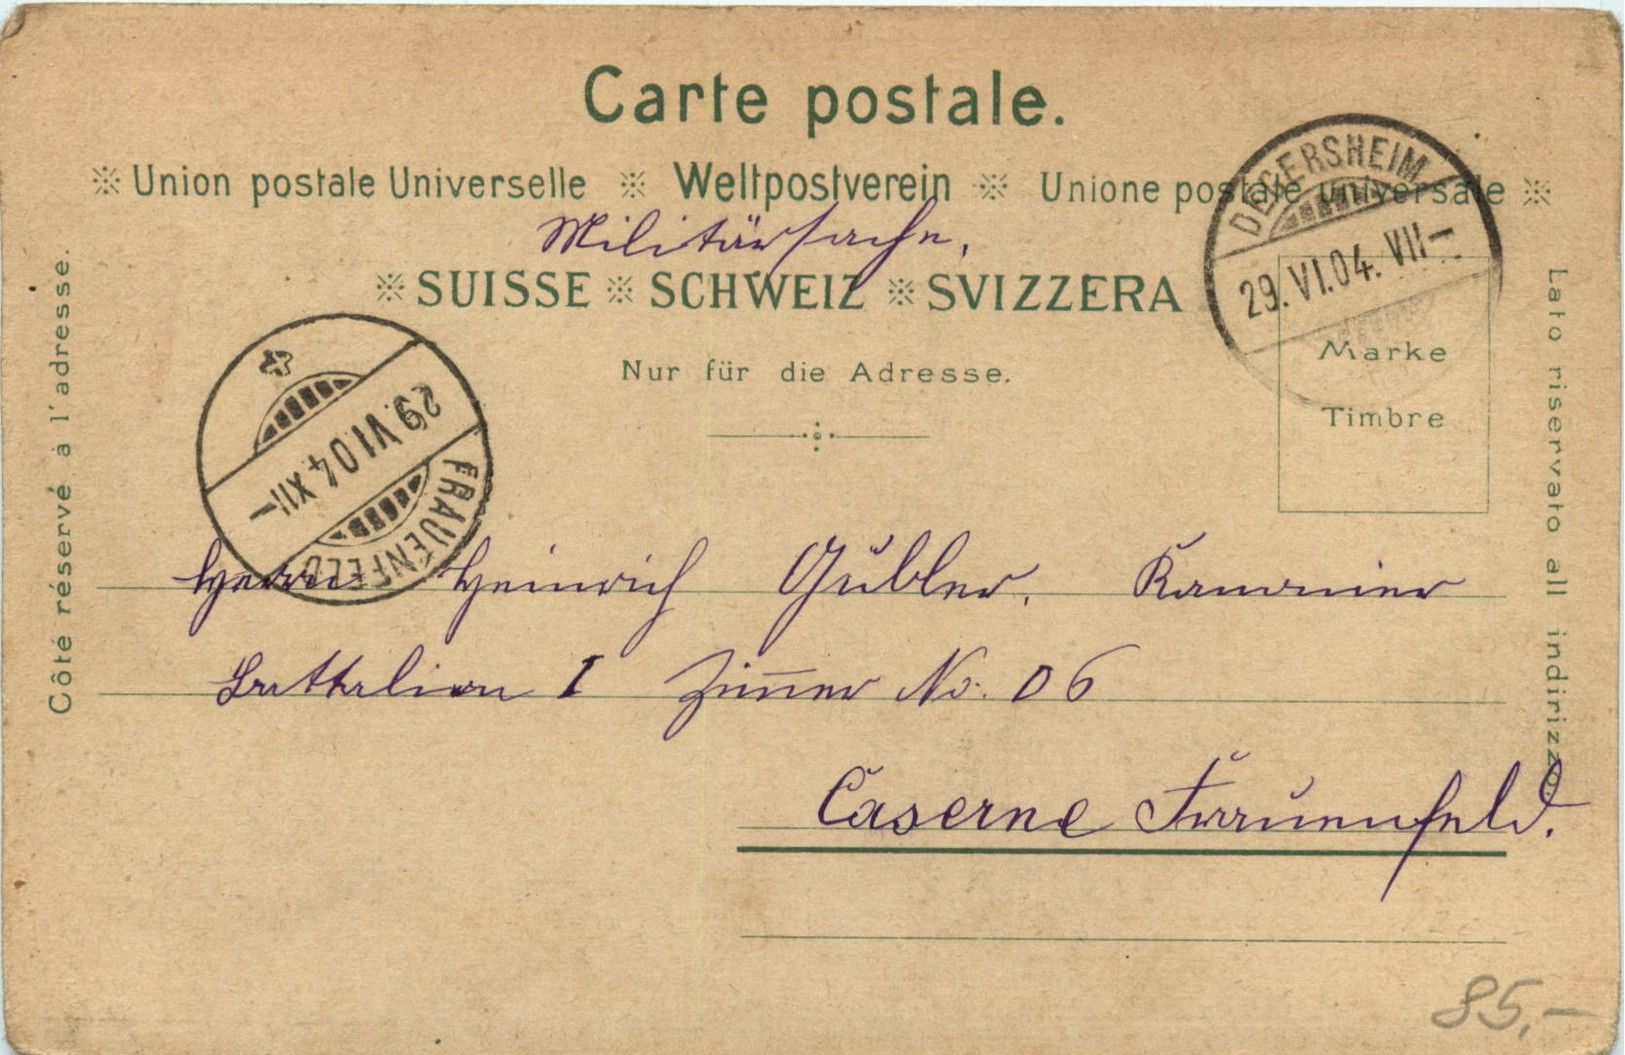 Carte postale.
Union postale Universelle ※ Weltpostverein ※ Unione postale universale
Militärsache.
SUISSE ※ SCHWEIZ ※ SVIZZERA
Nur für die Adresse.
Côté réservé à l'adresse.
Lato riservato all indirizzo.
DEGERSHEIM
29. VI.04. VII–
Marke
Timbre
29. VI 04. XII–
FRAUENFELD
Herrn Heinrich Gubler, Kanonier
Battalion I Zimmer No. 06
Caserne Frauenfeld.
85,-